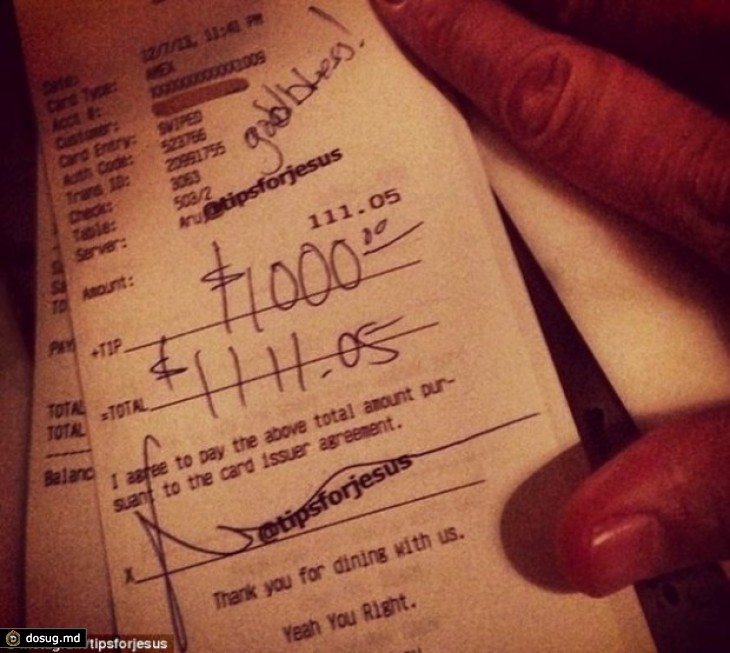 Date: 12/7/13, 11:41 PM
Card Type: AMEX
Acct #: XXXXXXXXXXX1009
Customer:
Card Entry: SWIPED
Auth Code: 523766
Trans ID: 20991755
Check: 3063
Table: 503/2
Server:
god bless!
@tipsforjesus
Amount: 111.05
+TIP $1000.00
=TOTAL $1111.05
I agree to pay the above total amount pur-
suant to the card issuer agreement.
@tipsforjesus
X
Thank you for dining with us.
Yeah You Right.
PAY
TOTAL
TOTAL
Balanc
dosug.md
/tipsforjesus